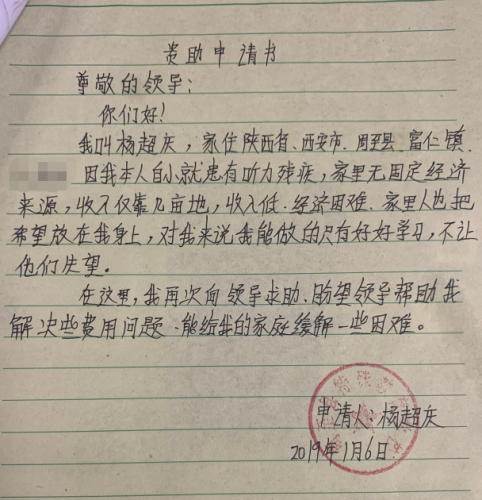 资助申请书
尊敬的领导：
你们好！
我叫杨超庆，家住陕西省、西安市、周至县、富仁镇
因我本人自小就患有听力残疾，家里无固定经济
来源，收入仅靠几亩地，收入低、经济困难、家里人也把
希望放在我身上，对我来说我能做的只有好好学习，不让
他们失望。
在这里，我再次向领导求助、盼望领导帮助我
解决些费用问题、能给我的家庭缓解一些困难。
申请人：杨超庆
2019年1月6日